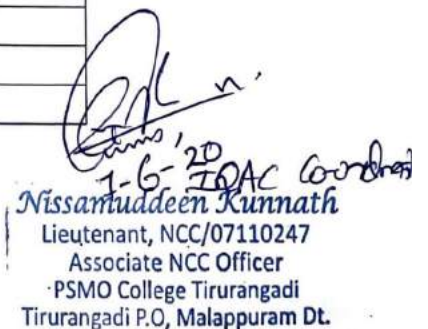 1-6-'20
IQAC Coordinator
Nissamuddeen Kunnath
Lieutenant, NCC/07110247
Associate NCC Officer
PSMO College Tirurangadi
Tirurangadi P.O, Malappuram Dt.